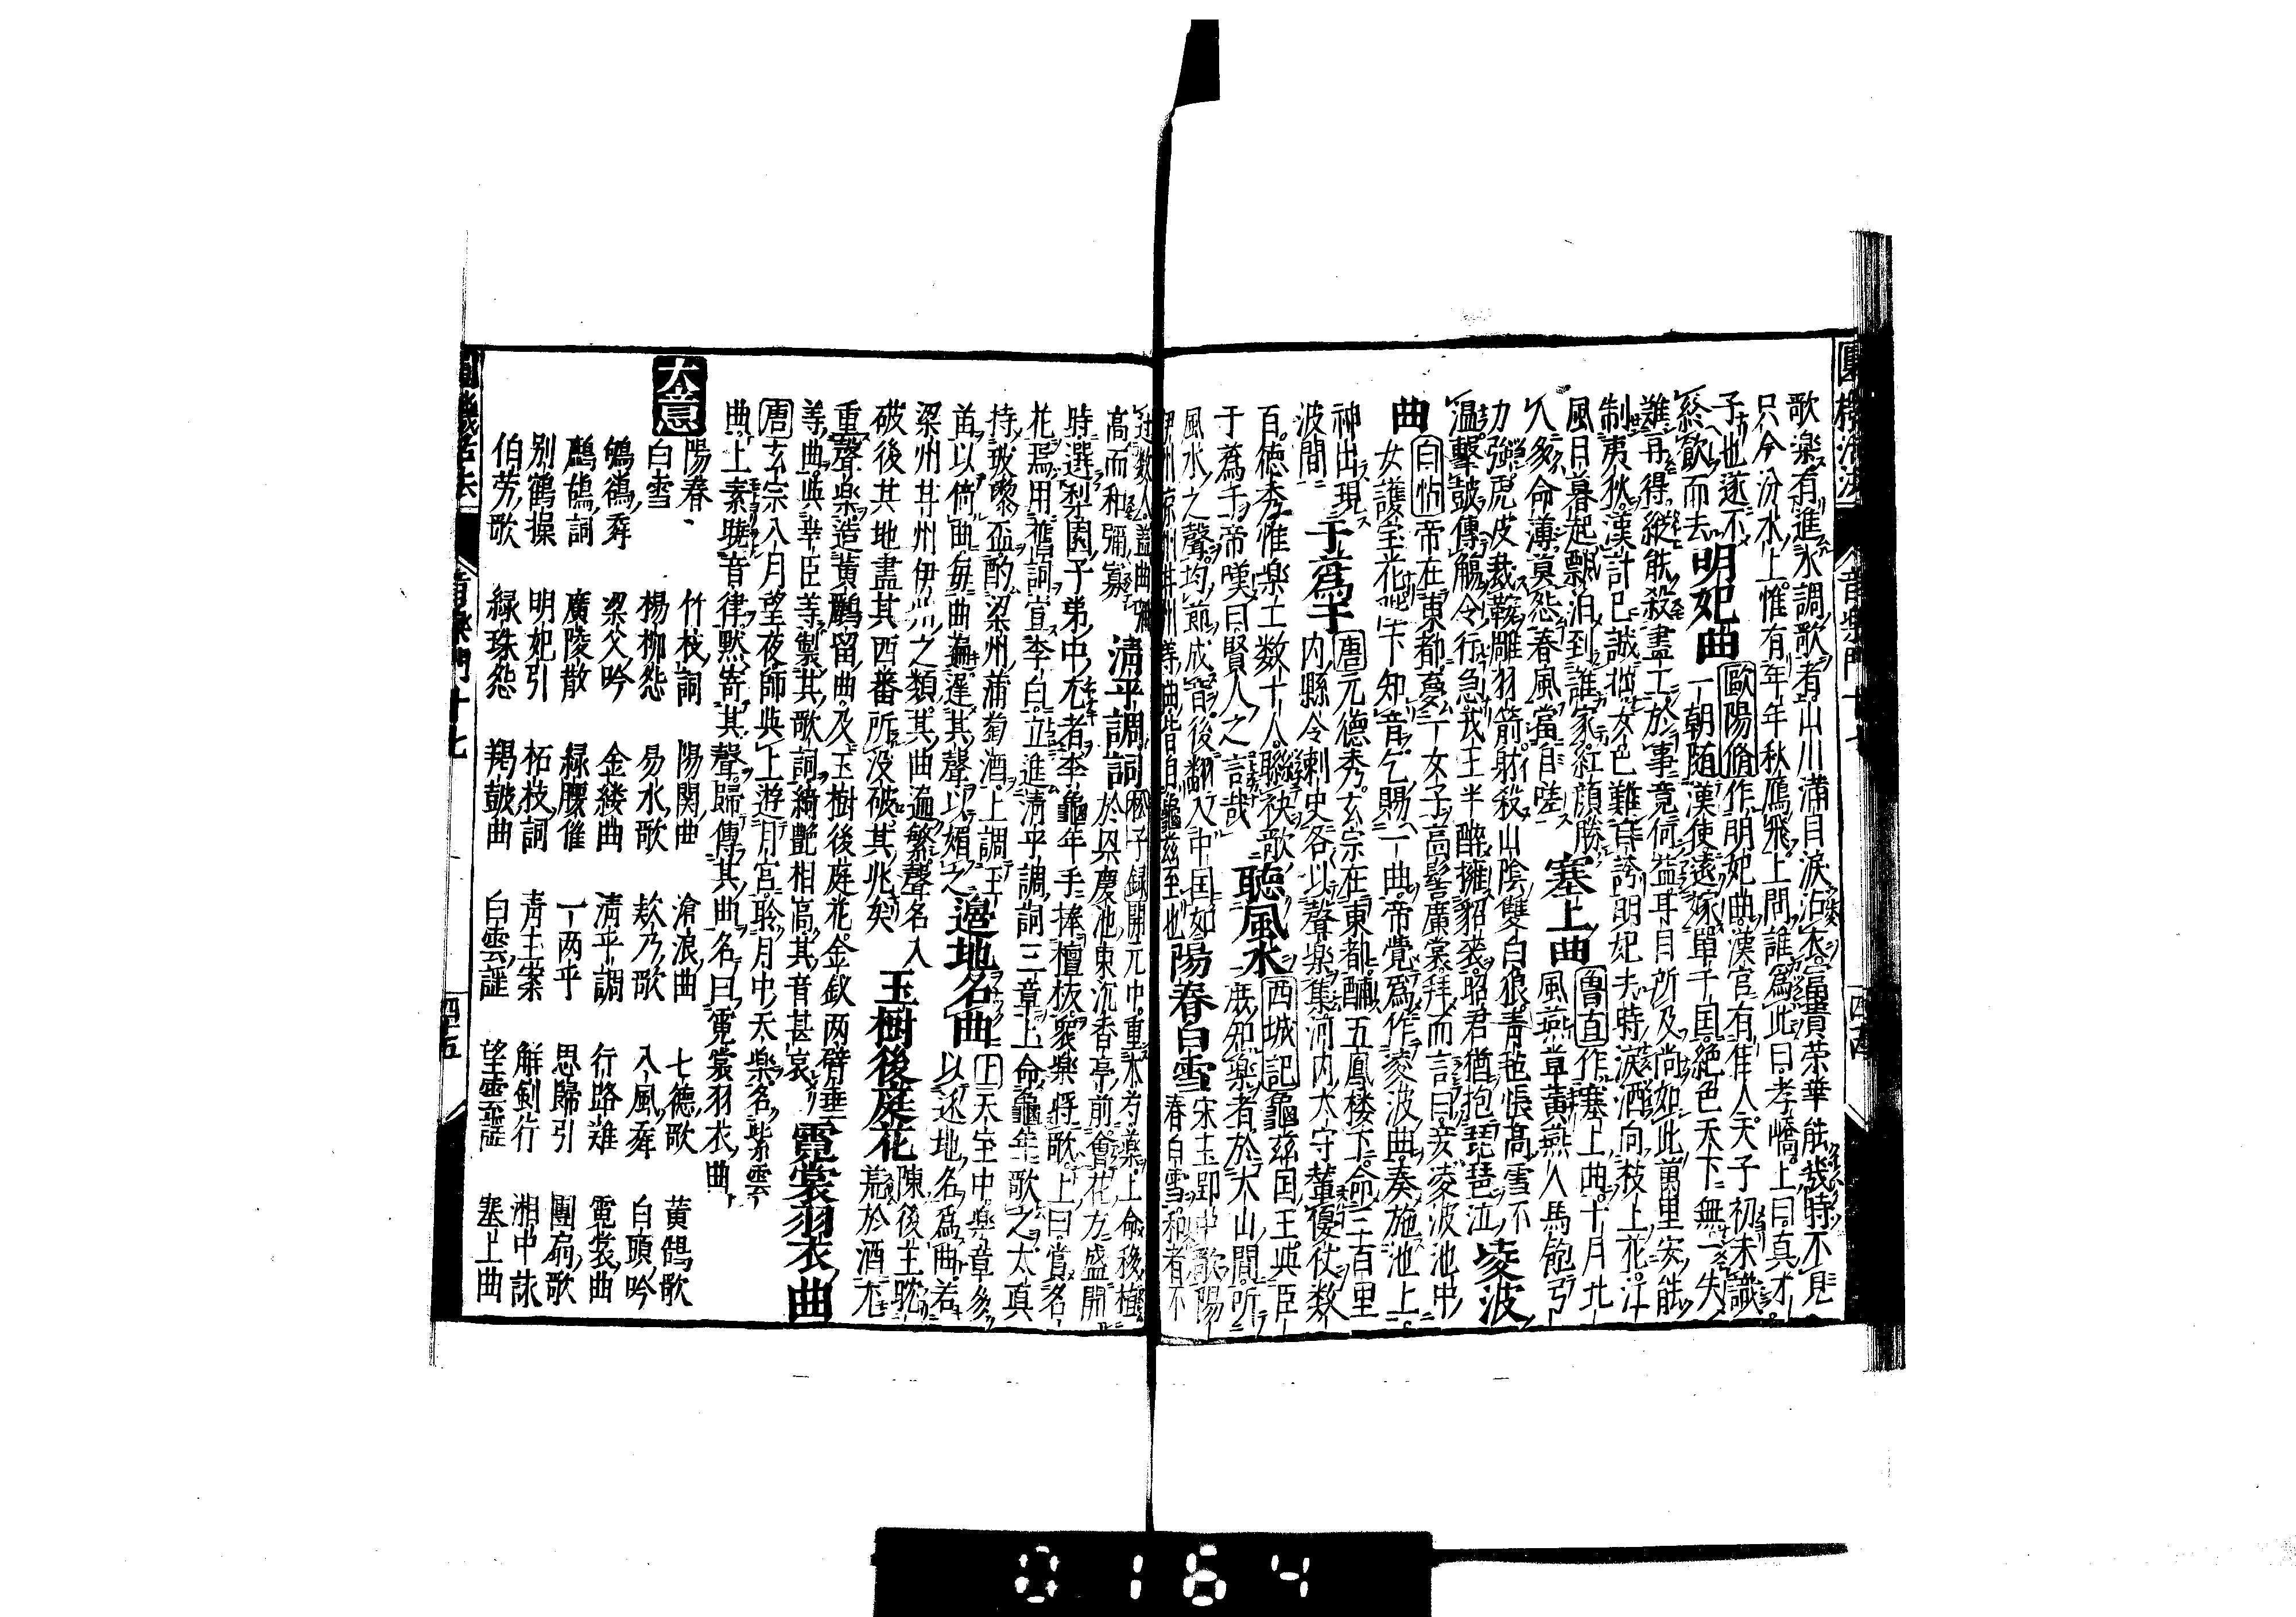 歌楽有進水調歌者山川滿目淚沾衣富貴荣華能幾時不見
只今汾水上惟有年年秋鴈飛上問誰為此曰李嶠上曰真才
子也遂不
終飲而去明妃曲歐陽脩作明妃曲漢宫有佳人天子初未識
一朝随漢使遠嫁單于囯絶色天下無一失
難再得縱能殺畫工於事竟何益耳目所及尚如此萬里安能
制夷狄漢計已誠拙女色難自誇明妃去時淚洒向枝上花
風日暮起飄泊到誰家紅顔勝
人多命薄莫怨春風當自嗟塞上曲魯直作塞上曲十月北
風燕草黄燕人馬飽弓
力強虎皮裁鞍雕羽箭射殺山陰雙白狼青氊帳高雪不
温擊鼓傳觴令行急戎王半醉擁貂裘昭君猶抱琵琶泣凌波
曲白帖帝在東都夢一女子高髻廣裳拜而言曰妾凌波池中
女護宝花池下知音乞賜一曲帝覚為作凌波曲奏施池上
神出現
波間于蔿于唐元德秀玄宗在東都酺五鳳楼下命三百里
内縣令刺史各以聲楽集河内太守輦優伎数
百德秀惟楽工数十人聯袂歌
于蔿于帝嘆曰賢人之言哉聽風水西域記龜兹囯王與臣
庶知楽者於大山間所
風水之聲均節成皆後翻入中囯如
伊州凉州甘州等曲皆自龜兹至也陽春白雪宋玉郢中歌陽
春白雪和者不
過数人盖曲彌
高而和彌寡清平調詞松子録開元中重木芍薬上命移植
於興慶池東沉香亭前會花方盛開
時選梨園子弟中尤者李龜年手捧檀板衆楽將歌上曰賞名
花焉用舊詞宣李白立進清平調詞三章上命龜年歌之太真
持玻瓈盃酌梁州蒲萄酒上調玉
笛以倚曲每曲遍遲其聲以媚之邉地名曲上天宝中楽章多
以邉地名為曲若
梁州甘州伊州之類其曲遍繁聲名入
破後其地盡其西番所没破其兆矣玉樹後庭花陳後主耽
荒於酒尤
重聲楽造黄鸝留曲及玉樹後庭花金釵两臂垂
等曲與幸臣等製其歌詞綺艶相高其音甚哀霓裳羽衣曲
唐玄宗八月望夜師與上遊月宫聆月中天楽名紫雲
曲上素曉音律默寄其聲歸傳其曲名曰霓裳羽衣曲
大意
陽春 竹枝詞 陽関曲 滄浪曲 七德歌 黄鵠歌
白雪 楊柳怨 易水歌 欸乃歌 八風舞 白頭吟
鴝鵒舞 梁父吟 金縷曲 清平調 行路难 霓裳曲
鷓鴣詞 廣陵散 緑腰催 一两乎 思歸引 團扇歌
别鶴操 明妃引 柘枝詞 青玉案 解剣行 湘中詠
伯劳歌 緑珠怨 羯鼓曲 白雲謡 望雲謡 塞上曲
音楽門十七
四五
0164